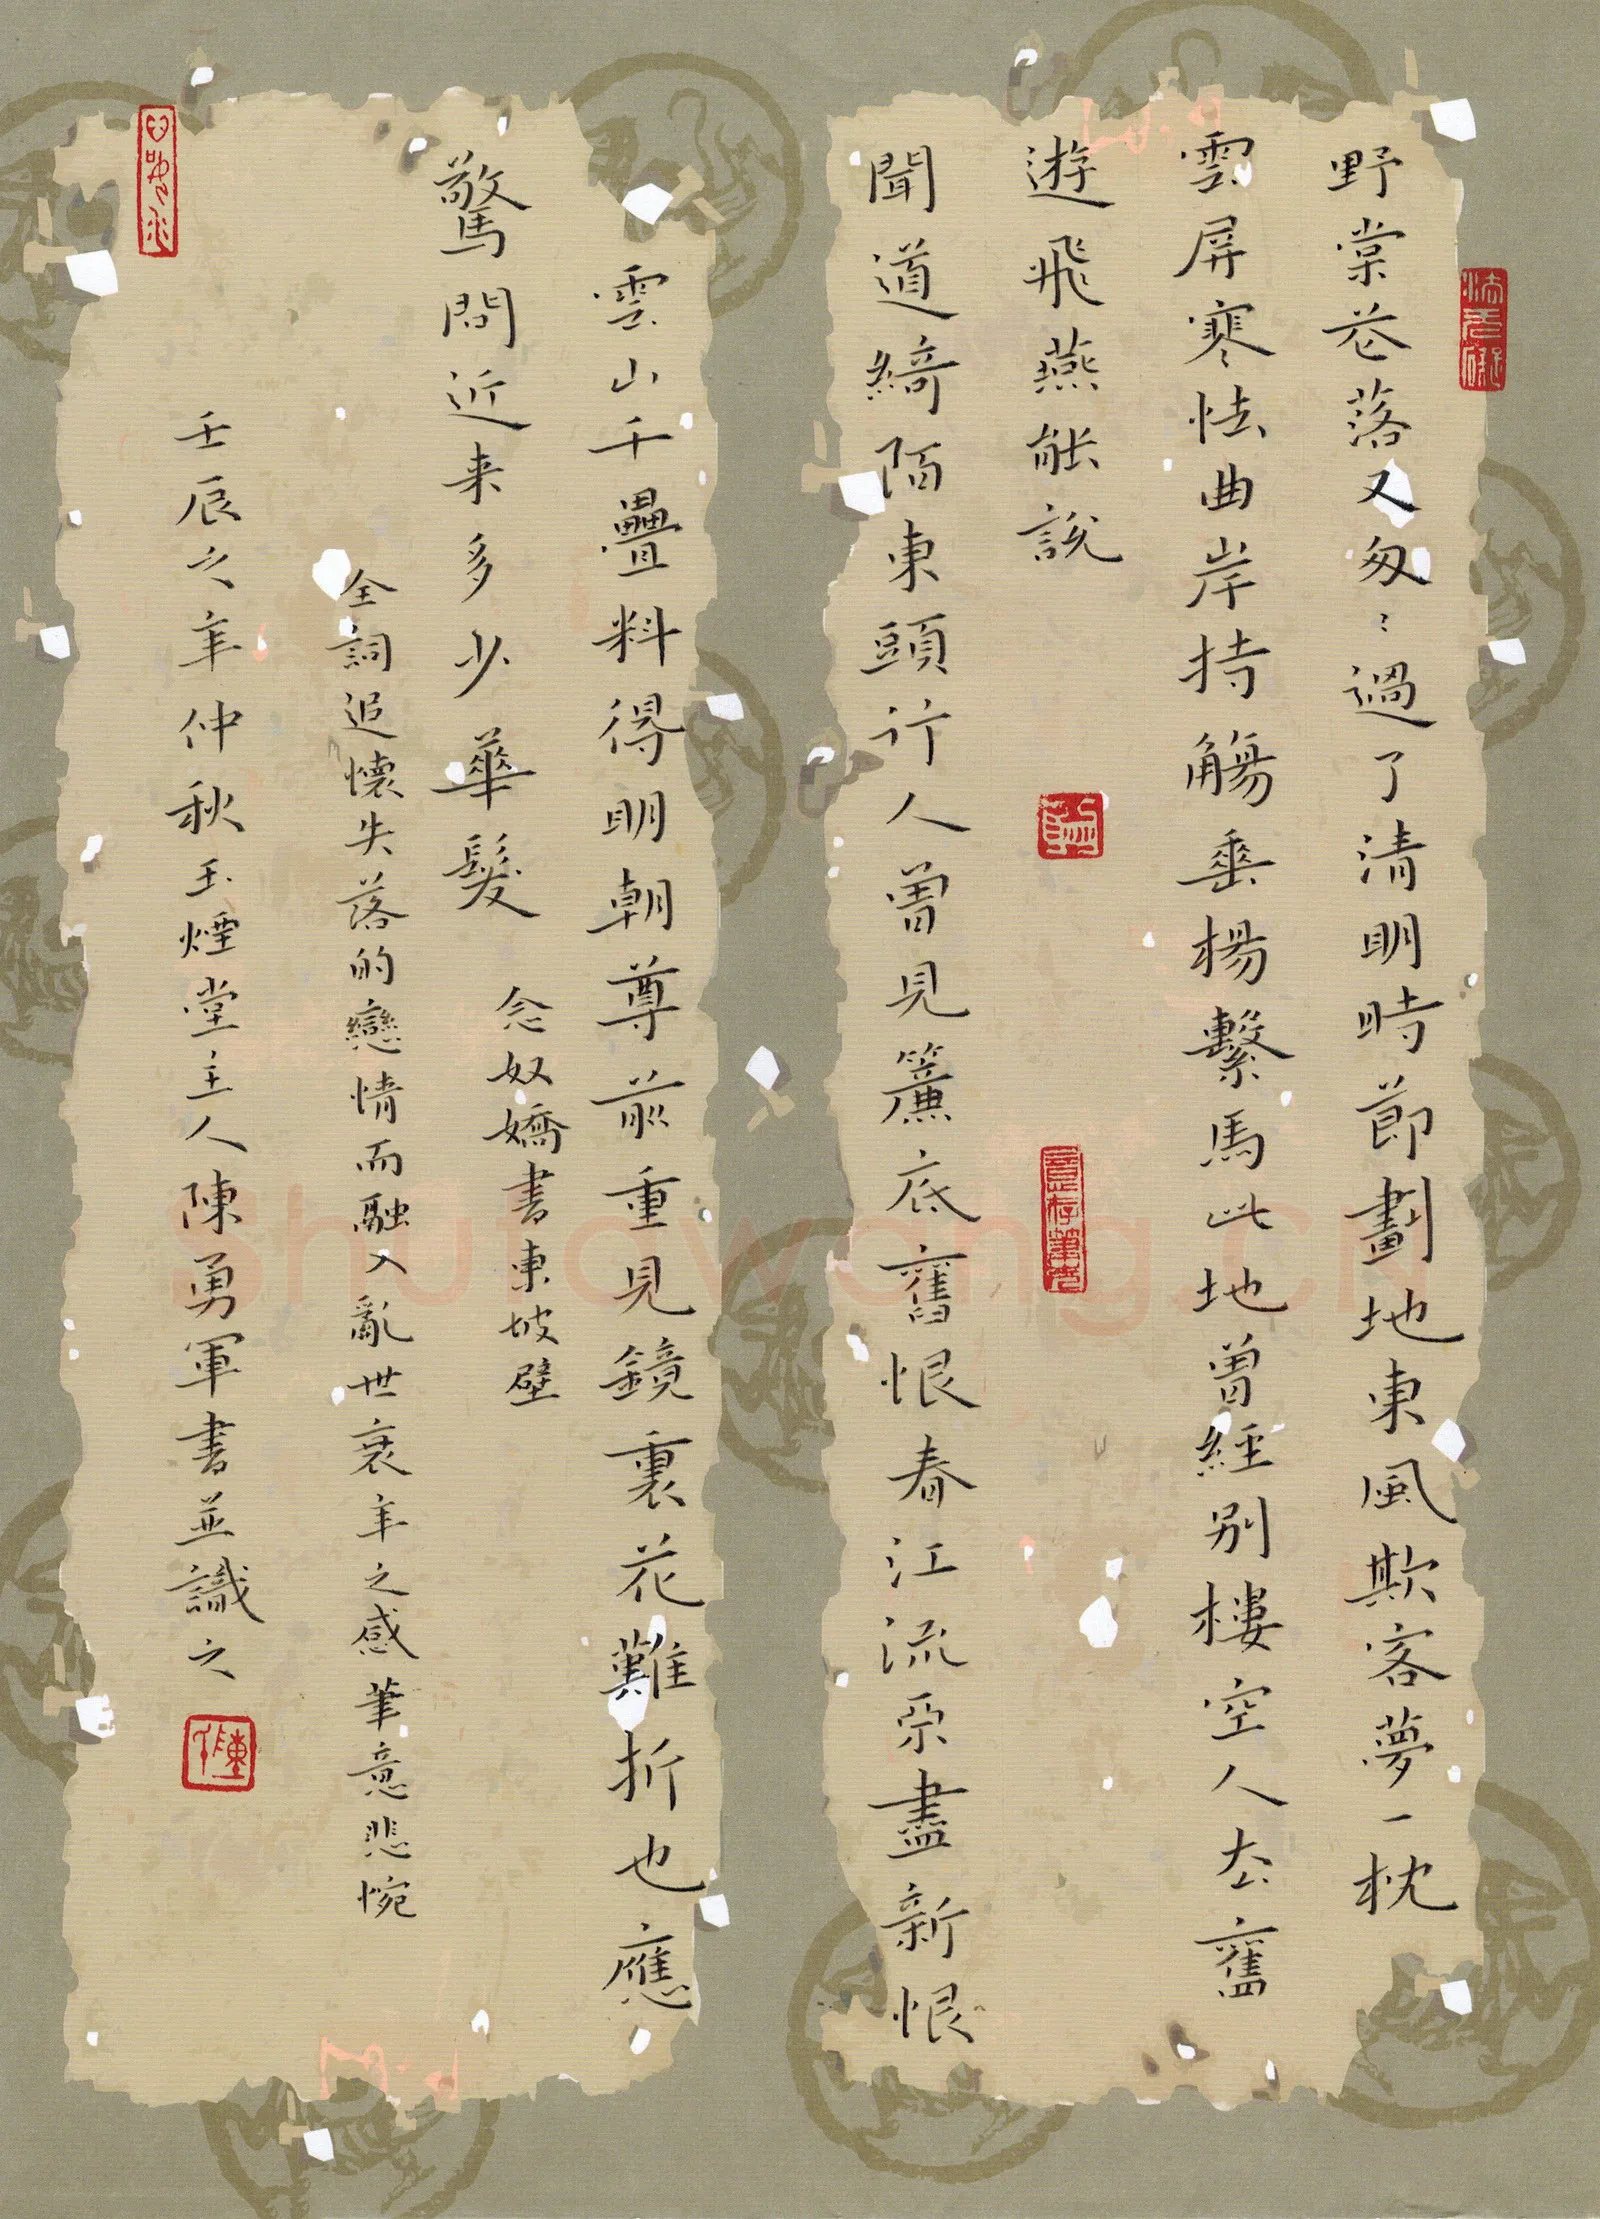 野棠花落又匆〻過了清明時節劃地東風欺客夢一枕
雲屏寒怯曲岸持觴垂楊繫馬此地曾經別樓空人去舊
遊飛燕能說
聞道綺陌東頭行人曾見簾底舊恨春江流未盡新恨
雲山千疊料得明朝尊前重見鏡裏花難折也應
驚問近来多少華髮 念奴嬌書東坡壁
全詞追懷失落的戀情而融入亂世衰年之感筆意悲惋
壬辰之年仲秋玉煙堂主人陳勇軍書並識之
Shufawang.cn